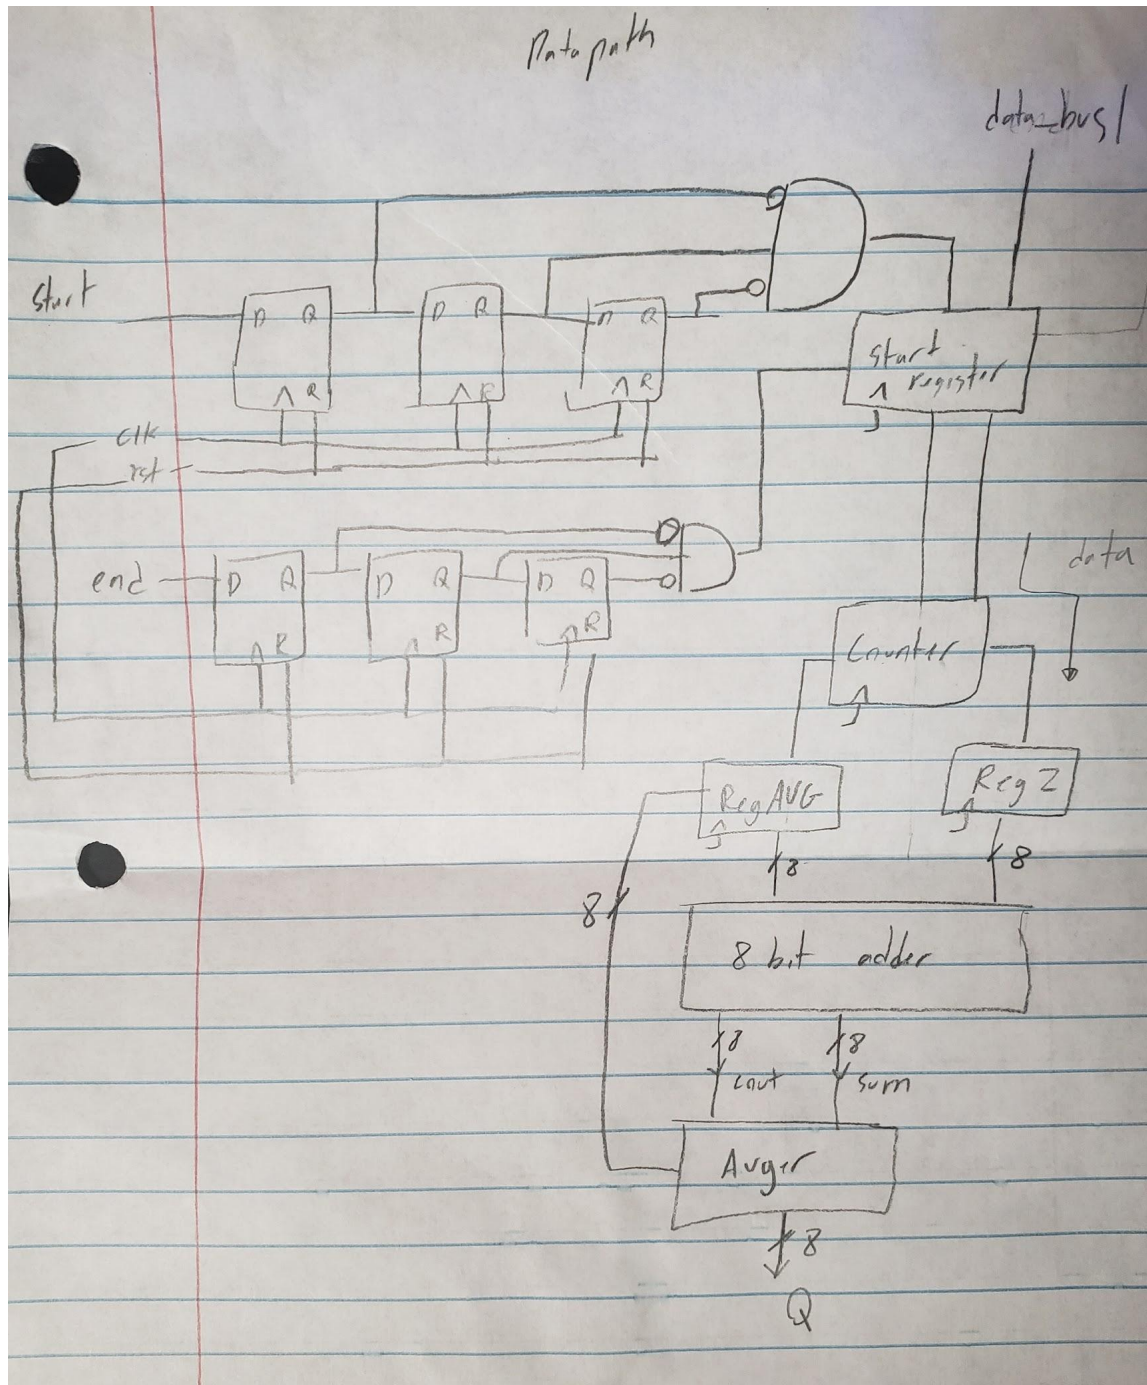 Datapath
data_bus1
Start
D Q
D Q
D Q
R
R
R
Start
register
clk
rst
end
D Q
D Q
D Q
R
R
R
data
Counter
Reg AVG
Reg 2
8
8
8
8 bit adder
8
8
cout
sum
Avger
8
Q